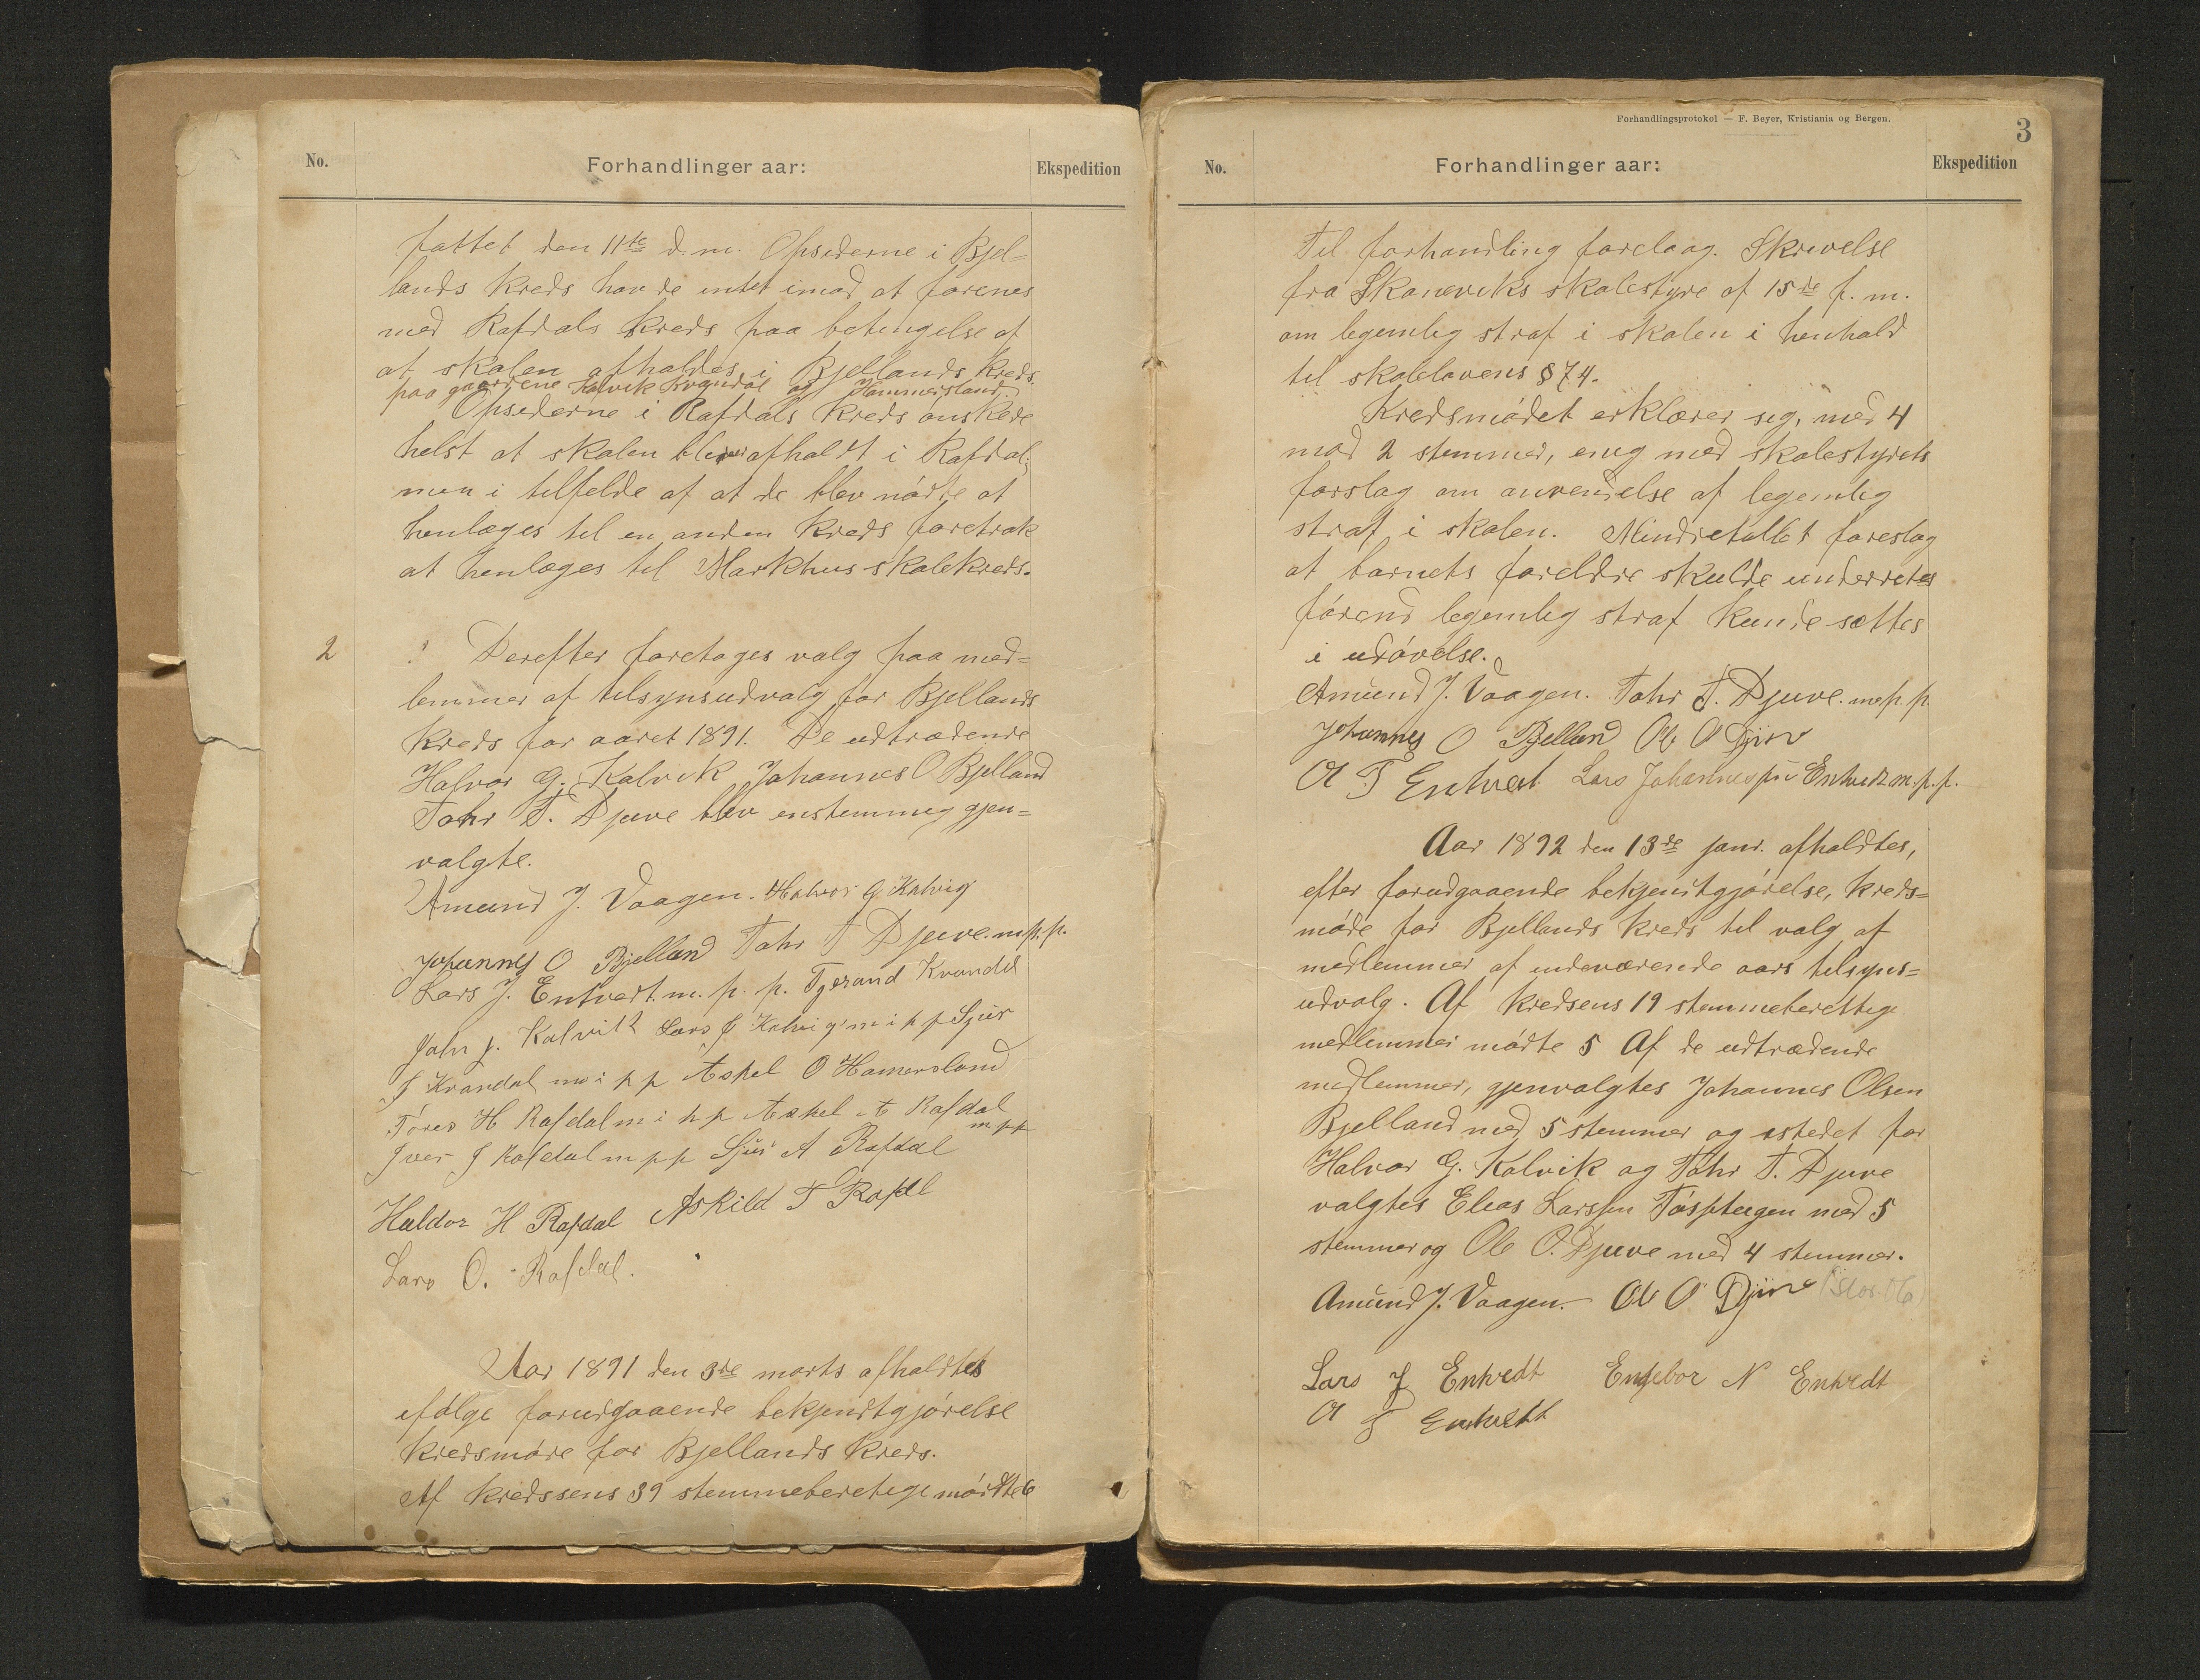 No.
Forhandlinger aar:
Ekspedition
fattet den 11te d.m. Opsiderne i Bjel-
lands kreds havde intet imod at forenes
med Rafdals kreds paa betingelse af
at skolen afholdes i Bjellands kreds
paa gaardene Kalvik Kvandal og Hammersland.
Opsiderne i Rafdals kreds ønskede
helst at skolen blev afholdt i Rafdal;
men i tilfelde af at de blev nødte at
henlæges til en anden kreds foretrak
at henlæges til Markhus skolekreds.
2
Derefter foretages valg paa med-
lemmer af tilsynsudvalg for Bjellands
kreds for aaret 1891. De udtrædende
Halvor G. Kalvik Johannes O Bjelland
Tohr T. Djuve blev enstemmig gjen-
valgte.
Amund J. Vaagen. Halvor G Kalvig
Johannes O Bjelland Tohr T Djuve. m.p.p.
Lars J. Entvedt. m. p. p. Tjerand Kvandal
John J. Kalvik Lars J Kalvig m i p p Sjur
J Kvandal m i p p Askel O Hamersland
Tøres H Rafdal m i p p Askel A Rafdal
m p p
Iver J Rafdal m p p Sjur A Rafdal
Haldor H Rafdal Askild T Rafdl
Lars O. Rafdal.
Aar 1891 den 3de marts afholdtes
ifølge forudgaaende bekjendtgjørelse
kredsmøde for Bjellands kreds.
Af kredssens 39 stemmeberetige mødte 6
Forhandlingsprotokol — F. Beyer, Kristiania og Bergen.
3
No.
Forhandlinger aar:
Ekspedition
Til forhandling forelaag. Skrivelse
fra Skaneviks skolestyre af 15de f. m.
om legemlig straf i skolen i henhold
til skolelovens § 74.
Kredsmødet erklærer sig, med 4
mod 2 stemmer, enig med skolestyrets
forslag om anvendelse af legemlig
straf i skolen. Mindretallet foreslog
at barnets foreldre skulde underretes
førend legemlig straf kunde sættes
i udøvelse.
Amund J. Vaagen. Tohr T. Djuve. m.p.p.
Johannes O Bjelland Ole O Djuv
O T Entvedt Lars Johannes Entvedt m.p.p.
Aar 1892 den 13de janr. afholdtes,
efter forudgaaende bekjendtgjørelse, kreds-
møde for Bjellands kreds til valg af
medlemmer af indeværende aars tilsyns-
udvalg. Af kredsens 19 stemmeberettige
medlemmer mødte 5 Af de udtrædende
medlemmer, gjenvalgtes Johannes Olsen
Bjelland med 5 stemmer og istedet for
Halvor G. Kalvik og Tohr T. Djuve
valgtes Elias Larssen med 5
stemmer og Ole O. Djuve med 4 stemmer.
Amund J. Vaagen. Ole O Djuve
Lars J Entvedt Engebor N Entvedt
O T Entvedt